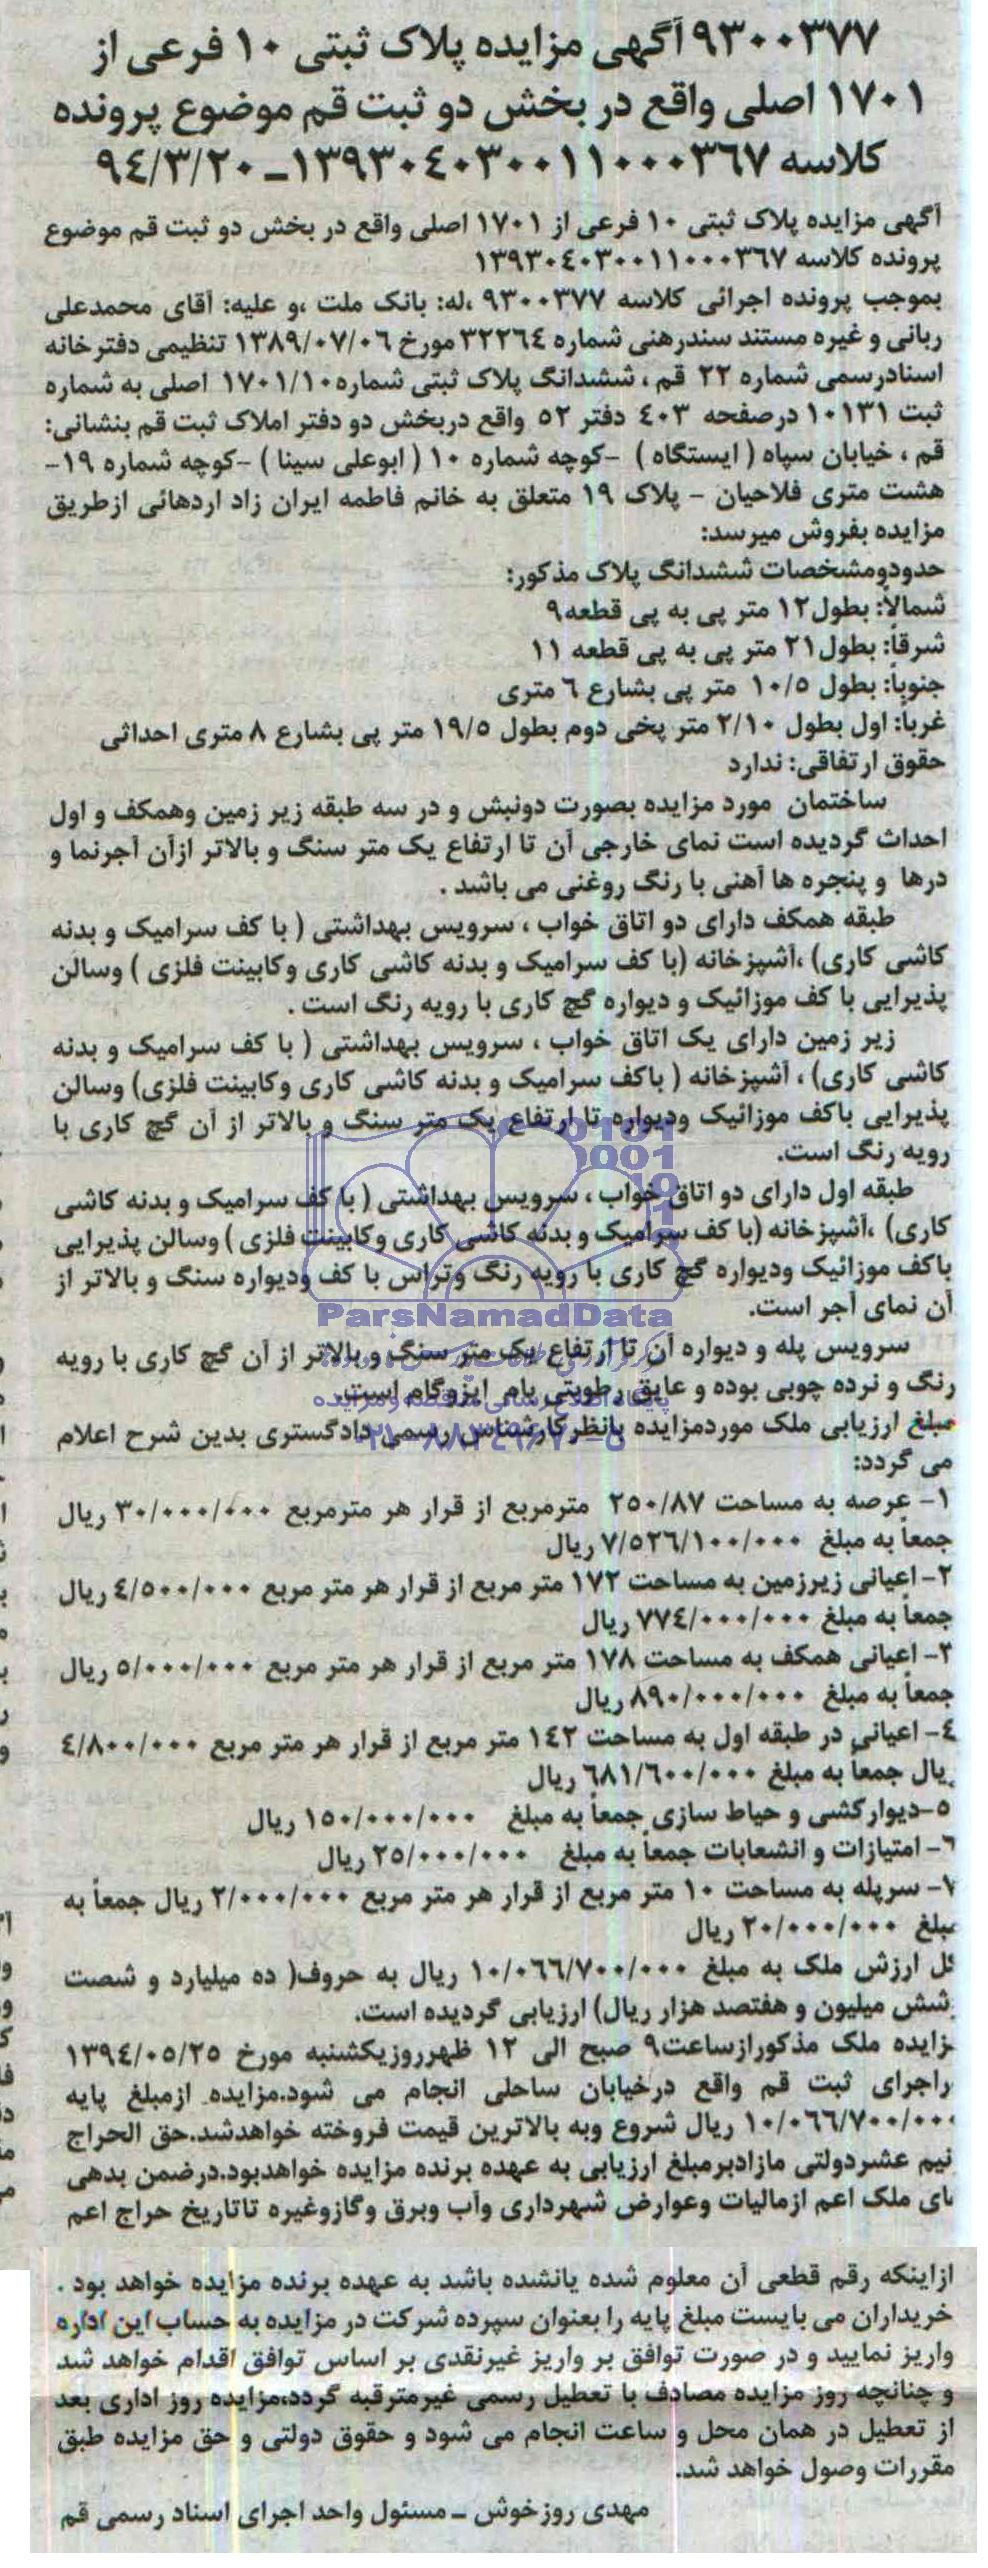 ۹۳۰۰۳۷۷ آگهی مزایده پلاک ثبتی ۱۰ فرعی از
۱۷۰۱ اصلی واقع در بخش دو ثبت قم موضوع پرونده
کلاسه ۱۳۹۳۰٤۰۳۰۰۱۱۰۰۰۳٦۷ــ۹٤/۳/۲۰
آگهی مزایده پلاک ثبتی ۱۰ فرعی از ۱۷۰۱ اصلی واقع در بخش دو ثبت قم موضوع
پرونده کلاسه ۱۳۹۳۰٤۰۳۰۰۱۱۰۰۰۳٦۷
بموجب پرونده اجرائی کلاسه ۹۳۰۰۳۷۷ ،له: بانک ملت ،و علیه: آقای محمدعلی
ربانی و غیره مستند سندرهنی شماره ۳۲۲٦٤ مورخ ۱۳۸۹/۰۷/۰٦ تنظیمی دفترخانه
اسنادرسمی شماره ۲۲ قم ، ششدانگ پلاک ثبتی شماره۱۷۰۱/۱۰ اصلی به شماره
ثبت ۱۰۱۳۱ درصفحه ٤۰۳ دفتر ٥۲ واقع دربخش دو دفتر املاک ثبت قم بنشانی:
قم ، خیابان سپاه ( ایستگاه ) -کوچه شماره ۱۰ ( ابوعلی سینا ) -کوچه شماره ۱۹-
هشت متری فلاحیان - پلاک ۱۹ متعلق به خانم فاطمه ایران زاد اردهائی ازطریق
مزایده بفروش میرسد:
حدودومشخصات ششدانگ پلاک مذکور:
شمالاً: بطول۱۲ متر پی به پی قطعه۹
شرقاً: بطول۲۱ متر پی به پی قطعه ۱۱
جنوباً: بطول ۱۰/٥ متر پی بشارع ٦ متری
غرباً: اول بطول ۲/۱۰ متر پخی دوم بطول ۱۹/٥ متر پی بشارع ۸ متری احداثی
حقوق ارتفاقی: ندارد
ساختمان مورد مزایده بصورت دونبش و در سه طبقه زیر زمین وهمکف و اول
احداث گردیده است نمای خارجی آن تا ارتفاع یک متر سنگ و بالاتر ازآن آجرنما و
درها و پنجره ها آهنی با رنگ روغنی می باشد .
طبقه همکف دارای دو اتاق خواب ، سرویس بهداشتی ( با کف سرامیک و بدنه
کاشی کاری) ،آشپزخانه (با کف سرامیک و بدنه کاشی کاری وکابینت فلزی ) وسالن
پذیرایی با کف موزائیک و دیواره گچ کاری با رویه رنگ است .
زیر زمین دارای یک اتاق خواب ، سرویس بهداشتی ( با کف سرامیک و بدنه
کاشی کاری) ، آشپزخانه ( باکف سرامیک و بدنه کاشی کاری وکابینت فلزی) وسالن
پذیرایی باکف موزائیک ودیواره تا ارتفاع یک متر سنگ و بالاتر از آن گچ کاری با
رویه رنگ است.
طبقه اول دارای دو اتاق خواب ، سرویس بهداشتی ( با کف سرامیک و بدنه کاشی
کاری) ،آشپزخانه (با کف سرامیک و بدنه کاشی کاری وکابینت فلزی ) وسالن پذیرایی
باکف موزائیک ودیواره گچ کاری با رویه رنگ وتراس با کف ودیواره سنگ و بالاتر از
آن نمای آجر است.
ParsNamadData
سرویس پله و دیواره آن تا ارتفاع یک متر سنگ و بالاتر از آن گچ کاری با رویه
رنگ و نرده چوبی بوده و عایق رطوبتی بام ایزوگام است.
پایگاه اطلاع رسانی مناقصه و مزایده
۰۲۱-۸۸۳٤۹٦۷۰-٥
مبلغ ارزیابی ملک موردمزایده بانظرکارشناس رسمی دادگستری بدین شرح اعلام
می گردد:
۱- عرصه به مساحت ۲٥۰/۸۷ مترمربع از قرار هر مترمربع ۳۰/۰۰۰/۰۰۰ ریال
جمعاً به مبلغ ۷/٥۲٦/۱۰۰/۰۰۰ ریال
۲- اعیانی زیرزمین به مساحت ۱۷۲ متر مربع از قرار هر متر مربع ٤/٥۰۰/۰۰۰ ریال
جمعاً به مبلغ ۷۷٤/۰۰۰/۰۰۰ ریال
۳- اعیانی همکف به مساحت ۱۷۸ متر مربع از قرار هر متر مربع ٥/۰۰۰/۰۰۰ ریال
جمعاً به مبلغ ۸۹۰/۰۰۰/۰۰۰ ریال
٤- اعیانی در طبقه اول به مساحت ۱٤۲ متر مربع از قرار هر متر مربع ٤/۸۰۰/۰۰۰
ریال جمعاً به مبلغ ٦۸۱/٦۰۰/۰۰۰ ریال
٥-دیوارکشی و حیاط سازی جمعاً به مبلغ ۱٥۰/۰۰۰/۰۰۰ ریال
٦- امتیازات و انشعابات جمعاً به مبلغ ۲٥/۰۰۰/۰۰۰ ریال
۷- سرپله به مساحت ۱۰ متر مربع از قرار هر متر مربع ۲/۰۰۰/۰۰۰ ریال جمعاً به
مبلغ ۲۰/۰۰۰/۰۰۰ ریال
کل ارزش ملک به مبلغ ۱۰/۰٦٦/۷۰۰/۰۰۰ ریال به حروف( ده میلیارد و شصت
شش میلیون و هفتصد هزار ریال) ارزیابی گردیده است.
زایده ملک مذکورازساعت۹ صبح الی ۱۲ ظهرروزیکشنبه مورخ ۱۳۹٤/۰٥/۲٥
راجرای ثبت قم واقع درخیابان ساحلی انجام می شود.مزایده ازمبلغ پایه
۱۰/۰٦٦/۷۰۰/۰۰۰ ریال شروع وبه بالاترین قیمت فروخته خواهدشد.حق الحراج
نیم عشردولتی مازادبرمبلغ ارزیابی به عهده برنده مزایده خواهدبود.درضمن بدهی
های ملک اعم ازمالیات وعوارض شهرداری وآب وبرق وگازوغیره تاتاریخ حراج اعم
ازاینکه رقم قطعی آن معلوم شده یانشده باشد به عهده برنده مزایده خواهد بود .
خریداران می بایست مبلغ پایه را بعنوان سپرده شرکت در مزایده به حساب این اداره
واریز نمایید و در صورت توافق بر واریز غیرنقدی بر اساس توافق اقدام خواهد شد
و چنانچه روز مزایده مصادف با تعطیل رسمی غیرمترقبه گردد،مزایده روز اداری بعد
از تعطیل در همان محل و ساعت انجام می شود و حقوق دولتی و حق مزایده طبق
مقررات وصول خواهد شد.
مهدی روزخوش ــ مسئول واحد اجرای اسناد رسمی قم